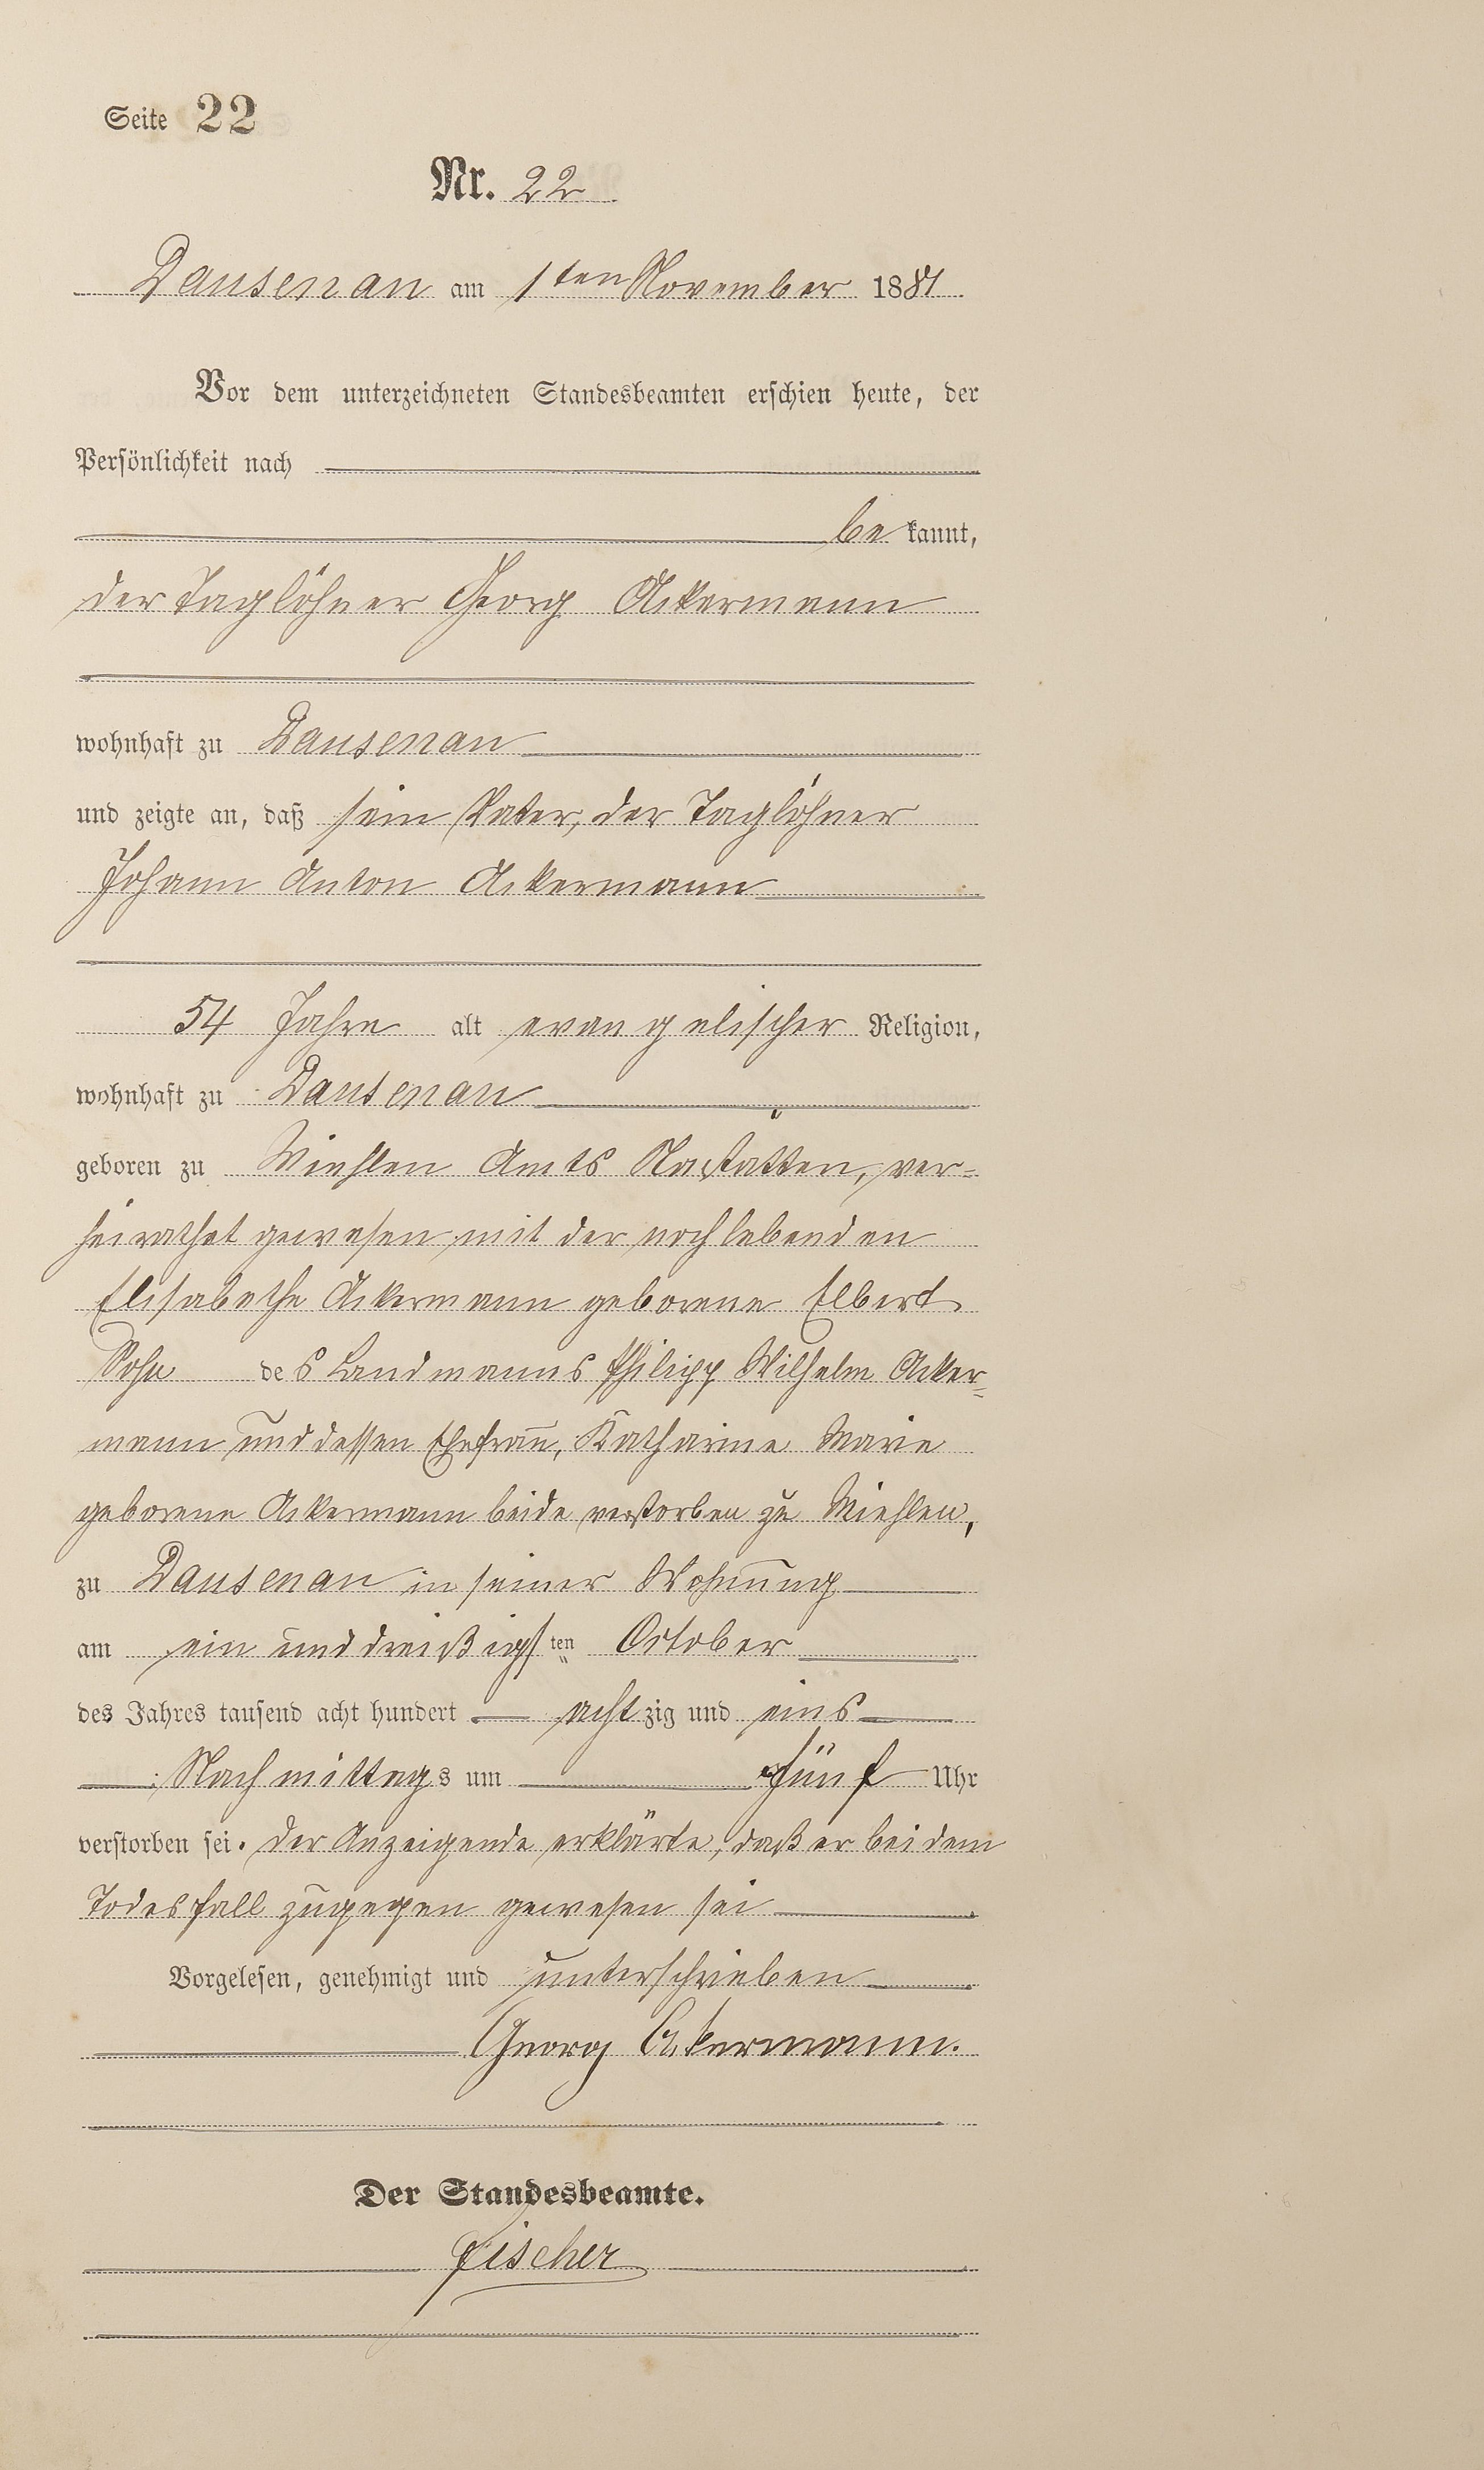 Seite 22
Nr. 22
Dausenau am 1ten November 1881
Vor dem unterzeichneten Standesbeamten erschien heute, der
Persönlichkeit nach
be kannt,
der Taglöhner Georg Ackermann
wohnhaft zu Dausenau
und zeigte an, daß sein Vater, der Taglöhner
Johann Anton Ackermann
54 Jahre alt evangelischer Religion,
wohnhaft zu Dausenau
geboren zu Miehlen Amts Nastätten, ver=
heirathet gewesen mit der noch lebenden
Elisabethe Ackermann geborene Elbert
Sohn des Landmanns Philipp Wilhelm Acker=
mann und dessen Ehefrau, Katharine Marie
geborene Ackermann beide verstorben zu Miehlen,
zu Dausenau in seiner Wohnung
am ein und dreißigsten October
des Jahres tausend acht hundert achtzig und eins
Nachmittags um fünf Uhr
verstorben sei. Der Anzeigende erklärte, daß er bei dem
Todesfall zugegen gewesen sei
Vorgelesen, genehmigt und unterschrieben
Georg Ackermann.
Der Standesbeamte.
Fischer